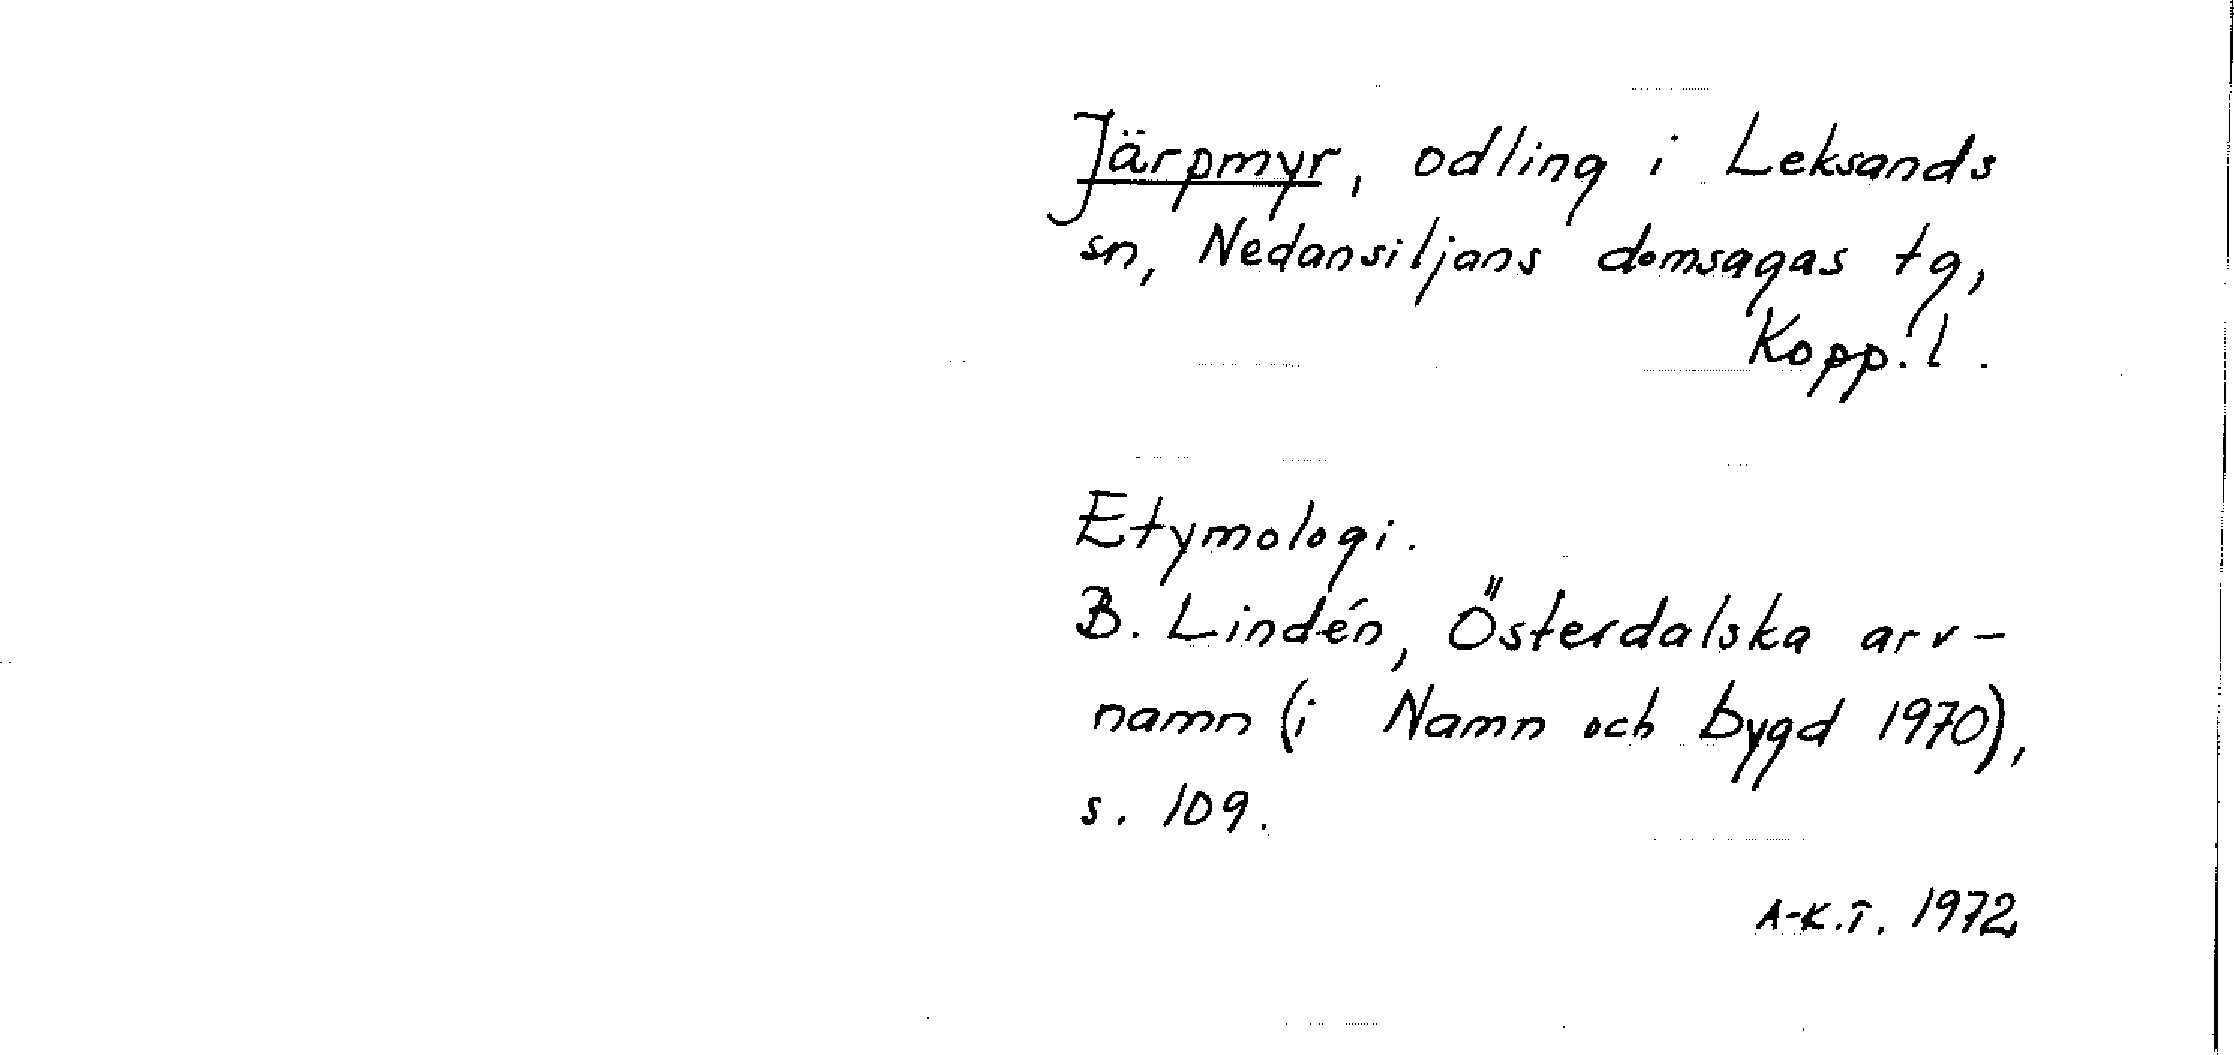 Järpmyr, odling i Leksands
sn, Nedansiljans domsagas tg,
Kopp. l.
Etymologi.
B. Lindén, Österdalska arv-
namn (i Namn och bygd 1970),
s. 109.
A-K.T. 1972